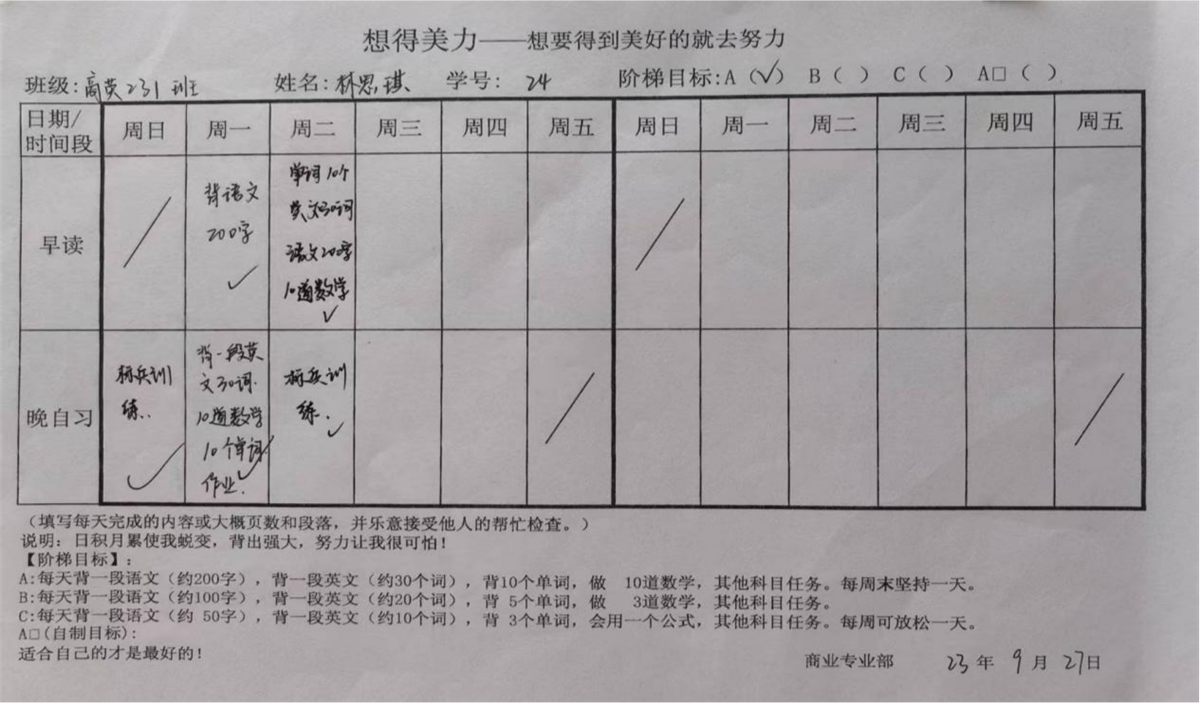 想得美力——想要得到美好的就去努力
班级: 高英231班 姓名: 林思琪 学号: 24 阶梯目标:A (✓) B ( ) C ( ) A□ ( )
日期/时间段 周日 周一 周二 周三 周四 周五 周日 周一 周二 周三 周四 周五
早读
背语文
200字
✓
单词10个
英文30词
语文200字
10道数学
✓
晚自习
标兵训
练.
✓
背一段英
文30词.
10道数学
10个单词
作业.
✓
标兵训
练.
✓
(填写每天完成的内容或大概页数和段落,并乐意接受他人的帮忙检查。)
说明:日积月累使我蜕变,背出强大,努力让我很可怕!
【阶梯目标】:
A:每天背一段语文(约200字),背一段英文(约30个词),背10个单词,做 10道数学,其他科目任务。每周末坚持一天。
B:每天背一段语文(约100字),背一段英文(约20个词),背 5个单词,做 3道数学,其他科目任务。
C:每天背一段语文(约 50字),背一段英文(约10个词),背 3个单词,会用一个公式,其他科目任务。每周可放松一天。
A□(自制目标):
适合自己的才是最好的!
商业专业部 23 年 9 月 27 日